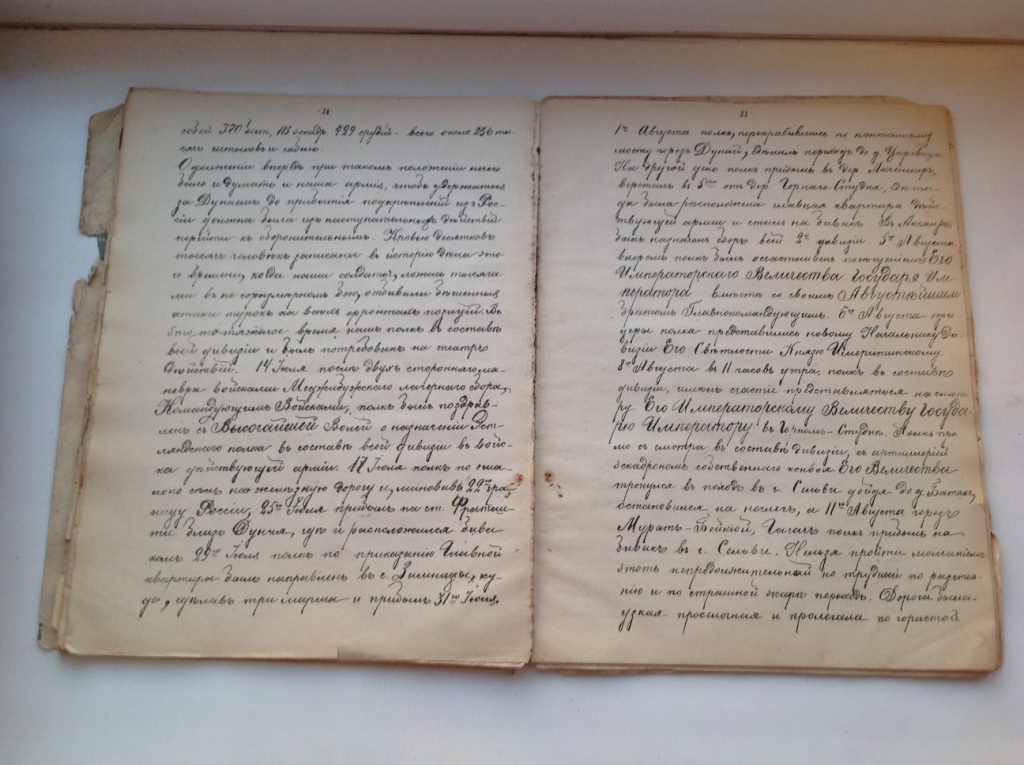 32
собой 370 бат., 115 эскадр. 429 орудiй - всего около 236 ты-
сяч штыковъ и сабель.
О движенiи впередъ при такомъ положенiи нечего
было и думать и наша армiя, чтобъ удержаться
за Дунаемъ до прибытiя подкрѣпленiй изъ Рос-
сiи должна была изъ наступательныхъ дѣйствiй
перейти къ оборонительнымъ. Кровью десятковъ
тысячъ человѣкъ записаны въ исторiю дни это-
го времени, когда наши солдаты, ложась тысяча-
ми въ не соразмѣрномъ бою, отбивали бѣшенныя
атаки турокъ на всемъ фронтѣ позицiй. Въ
это то тяжелое время нашъ полкъ въ составѣ
всей дивизiи и былъ потребованъ на театръ
дѣйствiй. 14 Iюля послѣ двухъ стороннего ма-
невра войсками Межибужскаго лагернаго сбора,
Командующимъ Войсками, полкъ былъ поздрав-
ленъ съ Высочайшей Волей о назначенiи Эст-
ляндскаго полка въ составѣ всей дивизiи въ войс-
ка дѣйствующей армiи. 17 Iюля полкъ по эше-
лонно сѣлъ на желѣзную дорогу и, миновавъ 22го гра-
ницу Россiи, 25го Iюля прибылъ на ст. Фратеш-
ти близь Дуная, гдѣ и расположился бива-
комъ. 29го Iюля полкъ по приказанiю Главной
квартиры былъ направленъ въ с. Зимницы, ку-
да, сдѣлавъ три марша и прибылъ 31го Iюля.
33
1го Августа полкъ, переправившись по понтонному
мосту черезъ Дунай, сдѣлалъ переходъ до д. Царевица
На другой день полкъ прибылъ въ дер. Акчаиръ,
верстахъ въ 5ти отъ дер. Горнаго-Студня, гдѣ то-
да была расположена главная квартира дѣйс-
твующей армiи и сталъ на бивакъ. Въ Акчаирѣ
былъ назначенъ сборъ всей 2й дивизiи. 5го Августа
вечеромъ полкъ былъ осчастливленъ посѣщенiемъ Его
Императорскаго Величества Государя Им-
ператора вмѣстѣ со своимъ Августѣйшимъ
братомъ Главнокомандующимъ. 6го Августа офи-
церы полка представились новому Начальнику Ди-
визiи Его Свѣтлости Князю Имеретинскому.
8го Августа въ 11 часовъ утра, полкъ въ составѣ
дивизiи, имѣлъ счастiе представляться на смот-
ру Его Императорскому Величеству Госуда-
рю Императору въ Горномъ-Студнѣ. Полкъ пря-
мо съ смотра въ составѣ дивизiи, съ артиллерiей
эскадрономъ собственнаго конвоя Его Величества
тронулся въ походъ въ г. Сельви дойдя до д. Батакъ,
остановился на ночлегъ, а 11го Августа черезъ
Муратъ-Бейкой, полкъ прибылъ на
бивакъ въ г. Сельви. Нельзя пройти молчанiемъ
этотъ непродолжительный но трудный по разстоя-
нiю и по страшной жарѣ переходъ. Дорога была
узкая проселочная и пролегала по гористой